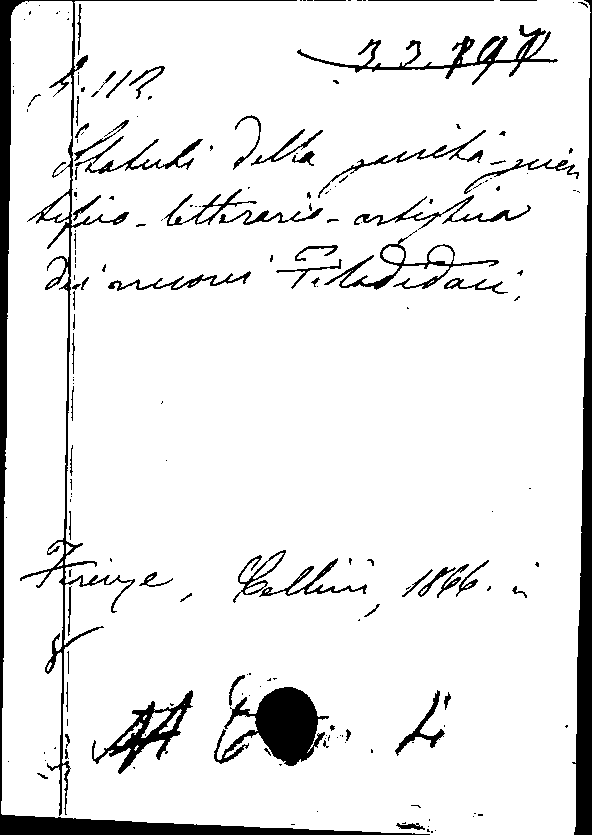 3.3.797
Statuti della società scien
tifico-letteraria-artistica
dei nuovi Filodidaci.
Firenze, Cellini, 1866. in
8°